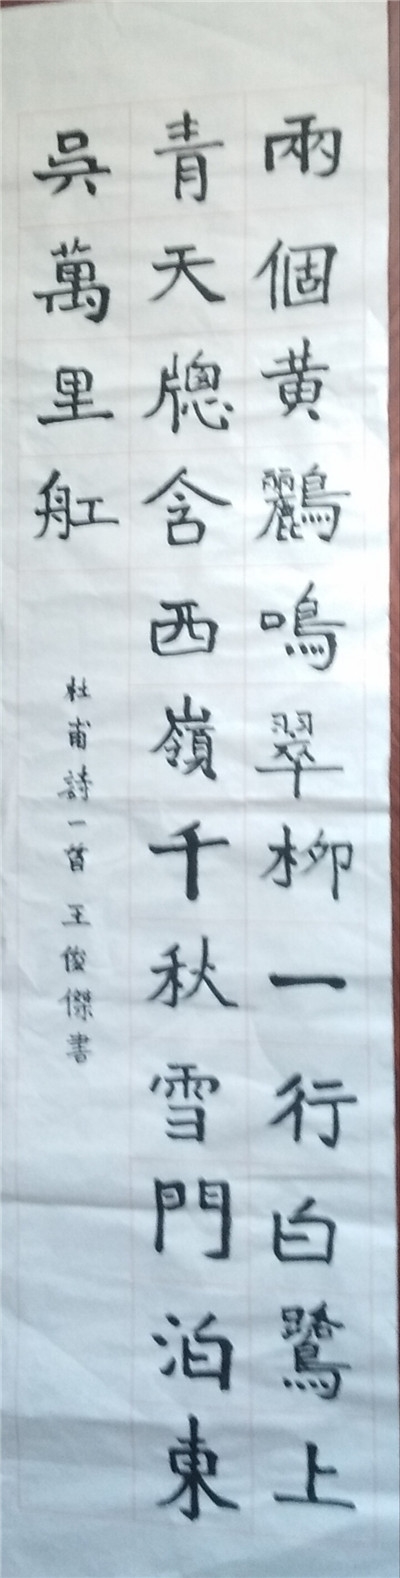 兩個黄鸝鳴翠柳一行白鷺上
青天牕含西嶺千秋雪門泊東
吳萬里舡
杜甫詩一首王俊傑書